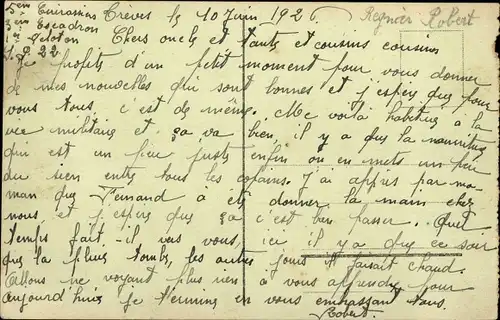 5em Cuirassiers Trèves le 10 Juin 1926 Regnier Robert
3em Escadron
Peloton Chers oncle et tante et cousins cousines
S.P. 22
Je profite d'un petit moment pour vous donner
de mes nouvelles qui sont bonnes et j'espère que pour
vous tous c'est de même. Me voilà habitué à la
vie militaire et ça va bien, il y a que la nourriture
qui est un peu juste enfin on en mets un peu
du sien entre tous les copains. J'ai appris par ma-
man que Fernand à été donner la main chez
nous et j'espère que ça c'est bien passer. Quel
temps fait-il vers vous, ici il y a que ce soir
que la pluie tombe, les autres jours il faisait chaud.
Allons ne voyant plus rien à vous apprendre pour
aujourd'hui je termine en vous embrassant tous.
Robert